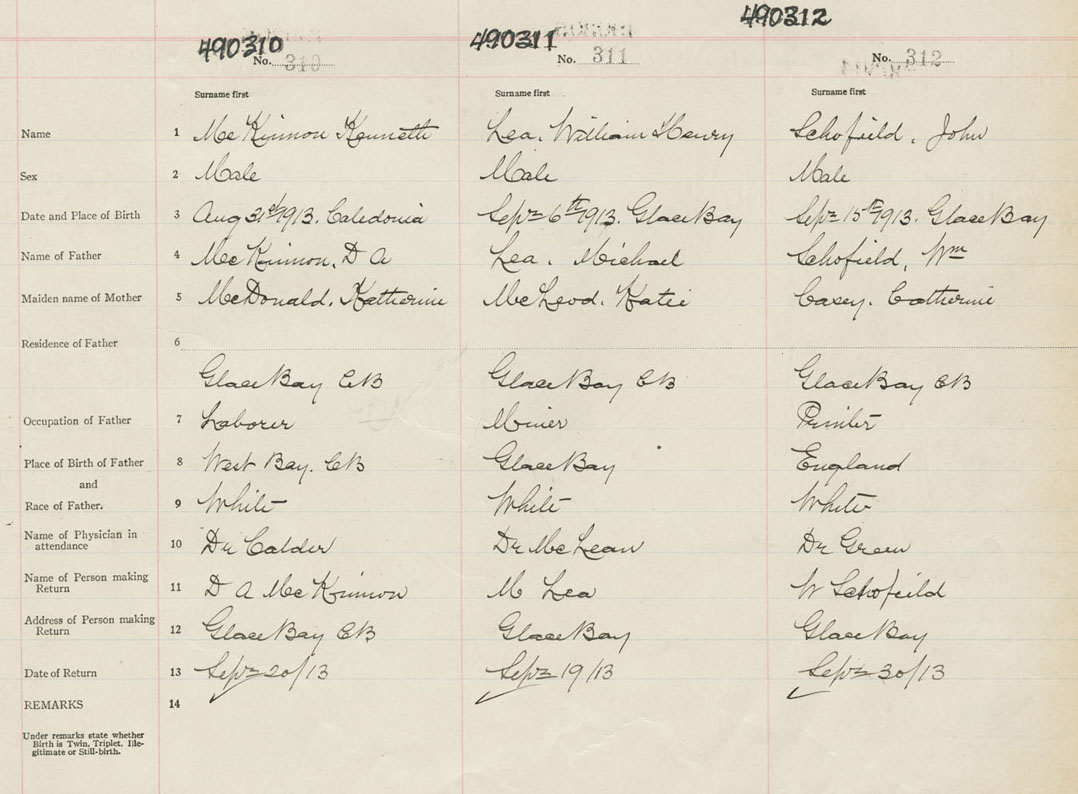 490310 490311 490312
No. 310 No. 311 No. 312
Surname first Surname first Surname first
Name 1 McKinnon Kenneth Lea, William Henry Schofield, John
Sex 2 Male Male Male
Date and Place of Birth 3 Aug 31st 1913. Caledonia Sept 6th 1913. Glace Bay Sept 15th 1913. Glace Bay
Name of Father 4 McKinnon, D A Lea, Michael Schofield, Wm
Maiden name of Mother 5 McDonald, Katherine McLeod, Katie Casey, Catherine
Residence of Father 6
Glace Bay CB Glace Bay CB Glace Bay CB
Occupation of Father 7 Laborer Miner Printer
Place of Birth of Father 8 West Bay. CB Glace Bay England
and
Race of Father. 9 White White White
Name of Physician in
attendance 10 Dr Calder Dr McLean Dr Green
Name of Person making
Return 11 D A McKinnon M Lea W Schofield
Address of Person making
Return 12 Glace Bay CB Glace Bay Glace Bay
Date of Return 13 Sept 20/13 Sept 19/13 Sept 30/13
REMARKS 14
Under remarks state whether
Birth is Twin, Triplet, Ille-
gitimate or Still-birth.